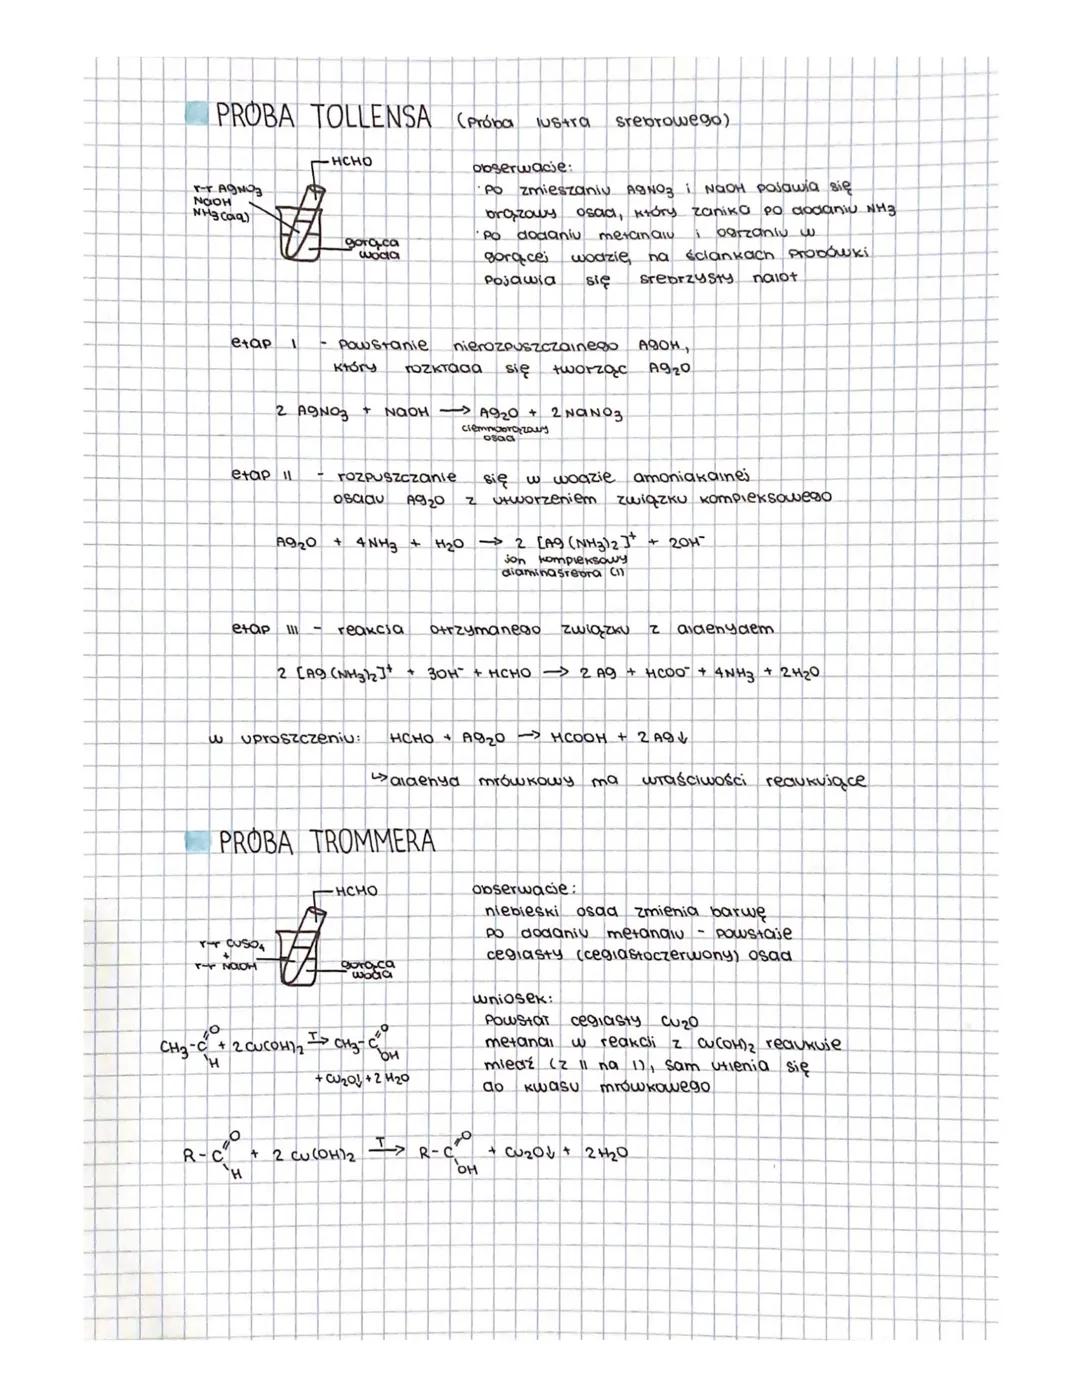 PRÓBA TOLLENSA (próba lustra srebrowego)
HCHO
r-r AgNO3
NaOH
NH3(aq)
gorąca
woda
obserwacje:
· po zmieszaniu AgNO3 i NaOH pojawia się
brązowy osad, który zanika po dodaniu NH3
· po dodaniu metanalu i ogrzaniu w
gorącej wodzie, na ściankach probówki
pojawia się srebrzysty nalot
etap I - powstanie nierozpuszczalnego AgOH,
który rozkłada się tworząc Ag2O
2 AgNO3 + NaOH → Ag2O + 2 NaNO3
ciemnobrązowy
osad
etap II - rozpuszczanie się w wodzie amoniakalnej
osadu Ag2O z utworzeniem związku kompleksowego
Ag2O + 4NH3 + H2O → 2 [Ag(NH3)2]⁺ + 2OH⁻
jon kompleksowy
diaminasrebra (I)
etap III - reakcja otrzymanego związku z aldehydem
2 [Ag(NH3)2]⁺ + 3OH⁻ + HCHO → 2 Ag + HCOO⁻ + 4NH3 + 2H2O
w uproszczeniu: HCHO + Ag2O → HCOOH + 2 Ag↓
↳ aldehyd mrówkowy ma właściwości redukujące
PRÓBA TROMMERA
HCHO
r-r CuSO4
+
r-r NaOH
gorąca
woda
obserwacje:
niebieski osad zmienia barwę
po dodaniu metanalu - powstaje
ceglasty (ceglastoczerwony) osad
wniosek:
powstał ceglasty Cu2O
metanal w reakcji z Cu(OH)2 redukuje
miedź (z II na I), sam utlenia się
do kwasu mrówkowego
CH3-C(=O)H + 2 Cu(OH)2 T→ CH3-C(=O)OH
+ Cu2O↓ + 2 H2O
R-C(=O)H + 2 Cu(OH)2 T→ R-C(=O)OH + Cu2O↓ + 2H2O